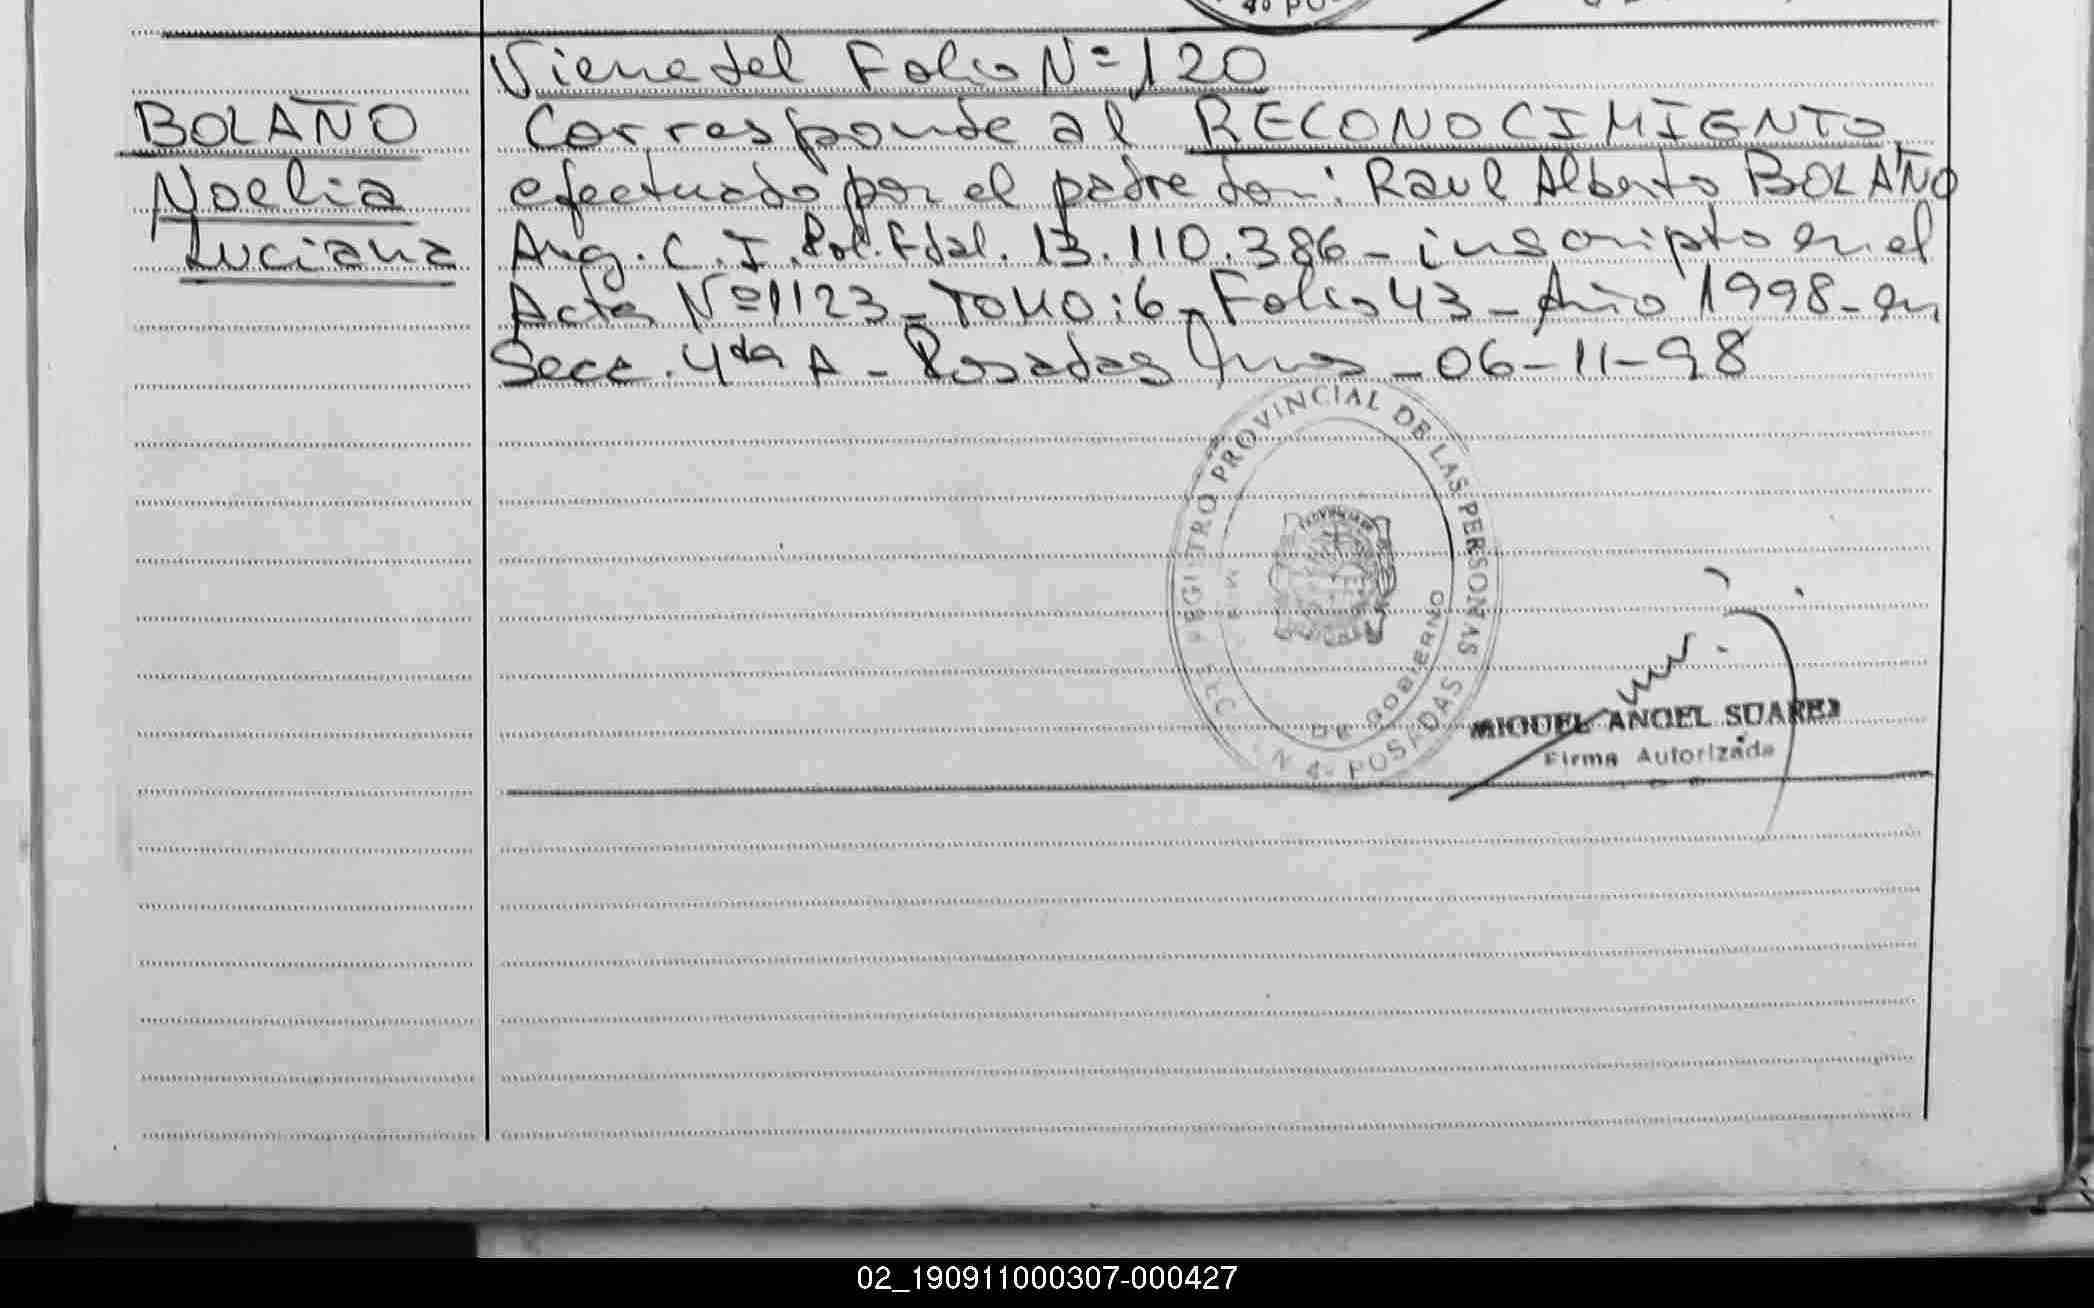 4º PO
Viene del Folio Nº 120
BOLAÑO Corresponde al RECONOCIMIENTO
Noelia efectuado por el padre don: Raul Alberto BOLAÑO
Luciana Arg. C.I. Pol. Fdal. 13.110.386 - inscripto en el
Acta Nº 1123 - TOMO: 6 - Folio 43 - Año 1998 - en
Secc. 4da A - Posadas Mnes - 06-11-98
REGISTRO PROVINCIAL DE LAS PERSONAS
DE GOBIERNO
N 4- POSADAS
MIGUEL ANGEL SUAREZ
Firma Autorizada
02_190911000307-000427